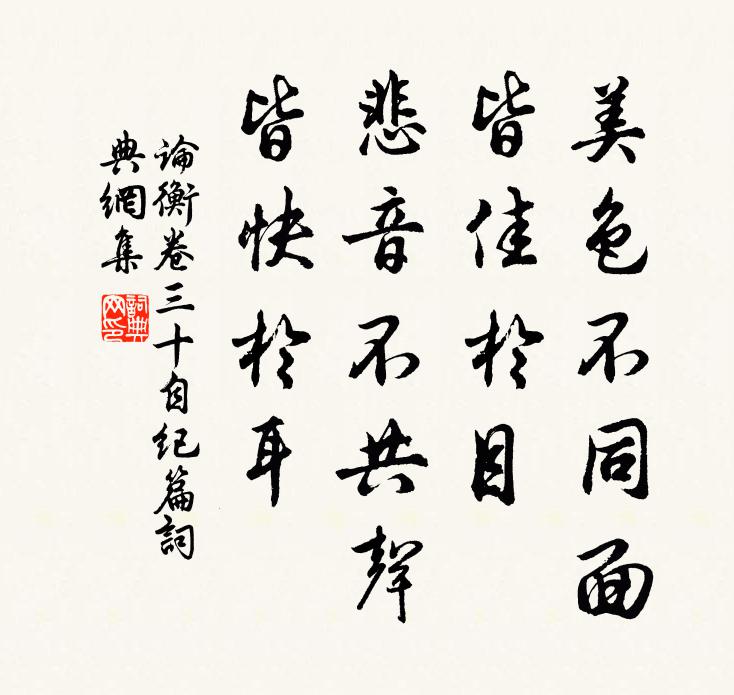 美色不同面
皆佳於目
悲音不共聲
皆快於耳
論衡卷三十自纪篇詞
典網集
詞典
网印